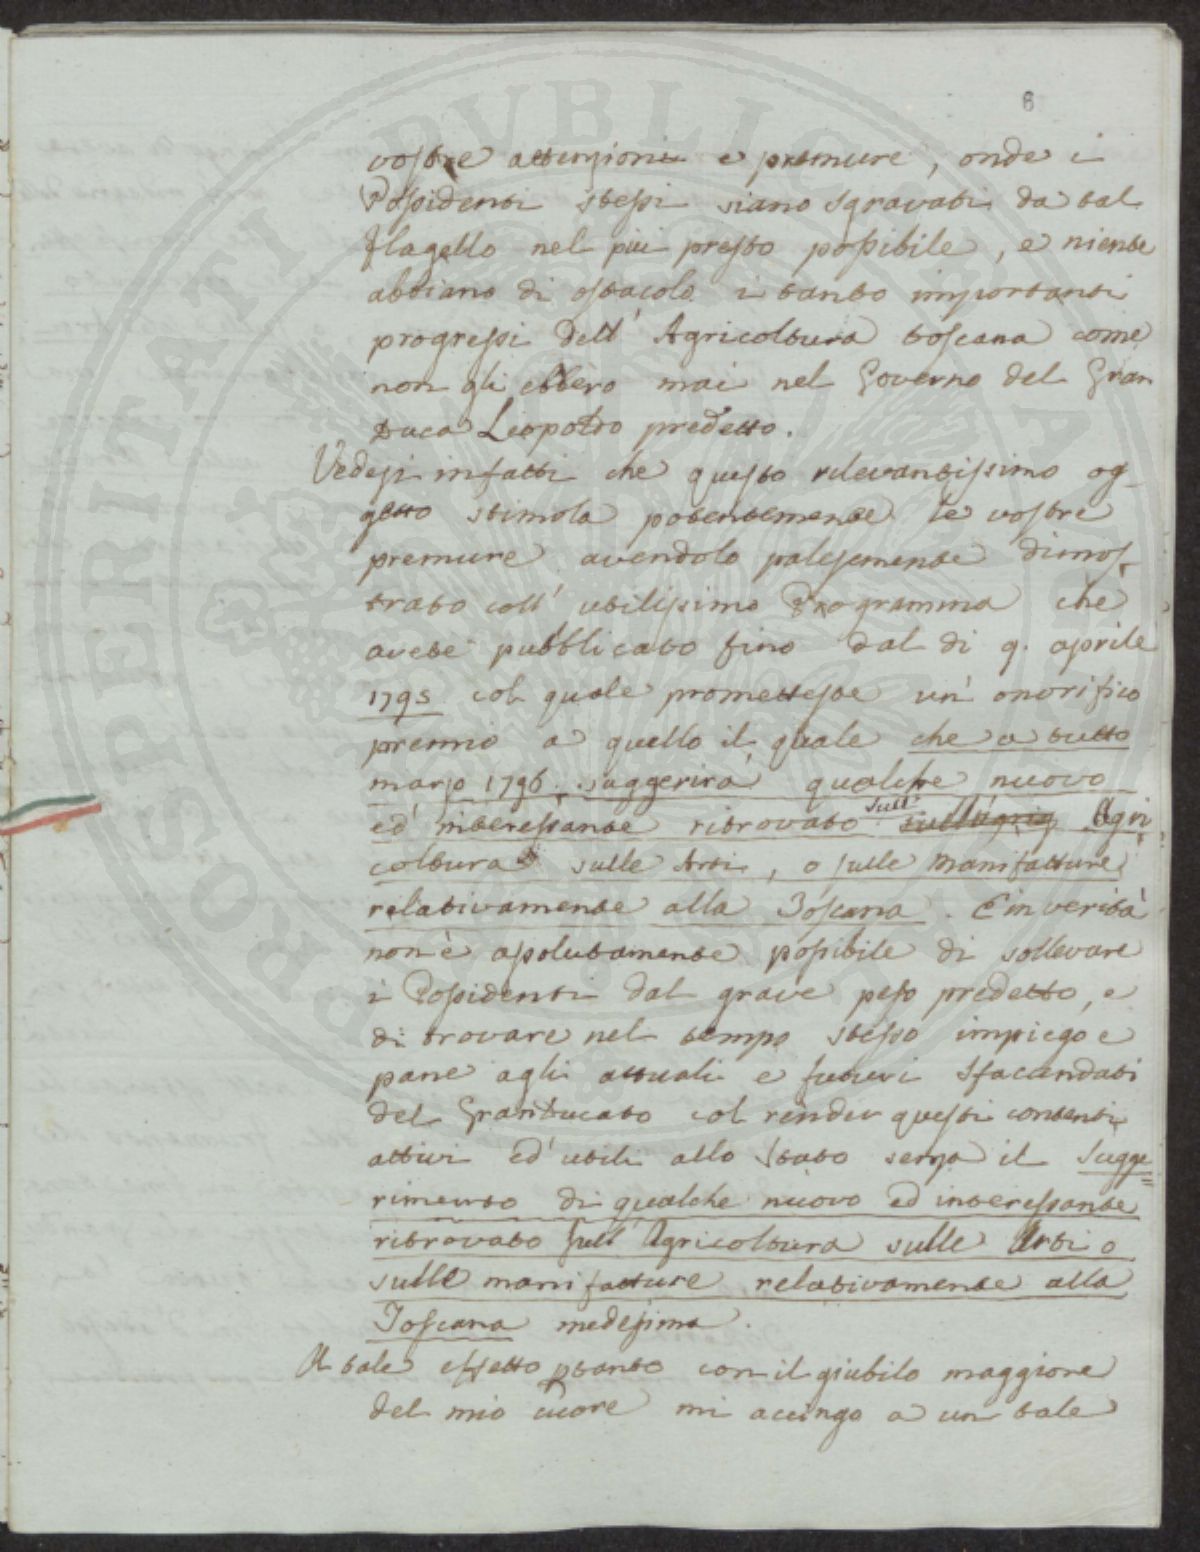 6
vostre attenzioni e premure, onde i
Possidenti stessi siano sgravati da tal
flagello nel più presto possibile, e niente
abbiano di ostacolo i tanto importanti
progressi dell' Agricoltura toscana come
non gli ebbero mai nel Governo del Gran
Duca Leopoldo predetto.
Vedesi infatti che questo rilevantissimo og-
getto stimola potentemente le vostre
premure avendolo palesemente dimos-
trato coll' utilissimo Programma che
avete pubblicato fino dal di 9. aprile
1795 col quale prometteste un' onorifico
premio a quello il quale che a tutto
marzo 1796. suggerirà qualche nuovo
ed' interessante ritrovato sull' Agri
coltura sulle Arti, o sulle Manifatture
relativamente alla Toscana. E in verità
non è assolutamente possibile di sollevare
i Possidenti dal grave peso predetto, e
di trovare nel tempo stesso impiego e
pane agli attuali e futuri sfacendati
del Granducato col render questi contenti
attivi ed' utili allo Stato senza il sugge
rimento di qualche nuovo ed interessante
ritrovato sull' Agricoltura sulle Arti o
sulle manifatture relativamente alla
Toscana medesima.
A tale effetto pertanto con il giubilo maggiore
del mio cuore mi accingo a un tale
PROSPERITATI PUBLICAE AUGENDAE